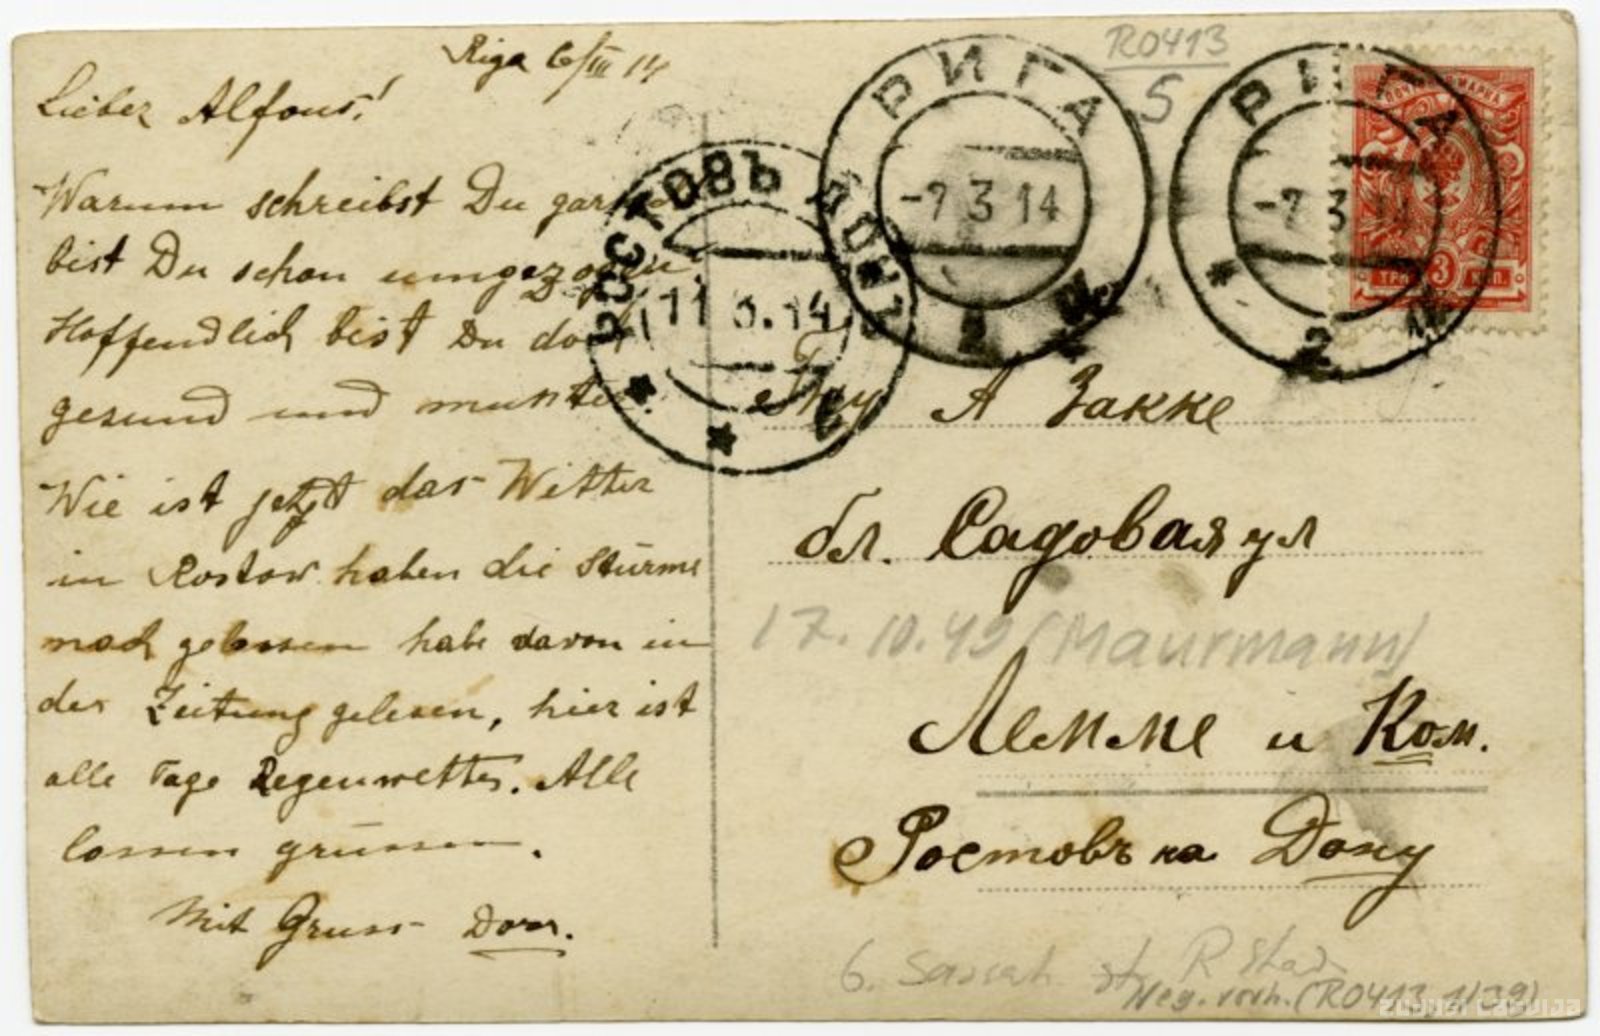 Riga 6/III 14
Lieber Alfons!
Warum schreibst Du gar
bist Du schon umgezogen
Hoffendlich bist Du doch
gesund und munter.
Wie ist jetzt das Wetter
in Rostow haben die Stürme
nach gelassen habe davon in
der Zeitung gelesen, hier ist
alle Tage Regenwetter. Alle
lassen grüssen.
Mit Gruss
R0413
5
РИГА
-7 3 14
2
РИГА
-7. 3 14
2
ПОЧТ МАРКА
ТРИ 3 КОП.
РОСТОВЪ ДОН
11 3.14
Гну А Закке
бл. Садовая ул
17.10.49 (Maurmann)
Лемме и Ком.
Ростовъ на Дону
6.
Neg. vorh. (R0413,1/39)
zudusi Latvija